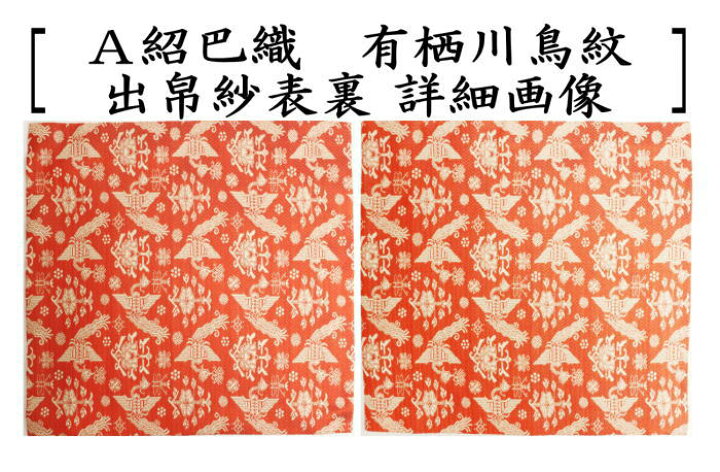 A紹巴織　有栖川鳥紋
出帛紗表裏 詳細画像